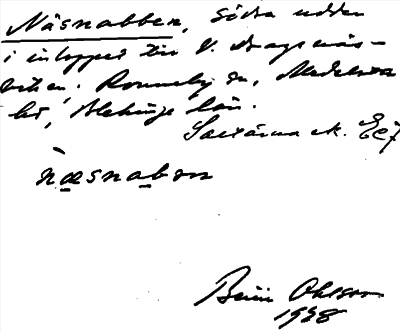 Näsnabben, södra udden
i inloppet till V. Dragsnäs-
viken. Ronneby sn, Medelsta
hd, Blekinge län.
Saxärna ek. Ec7
næsnaben
Ohlsson
1928